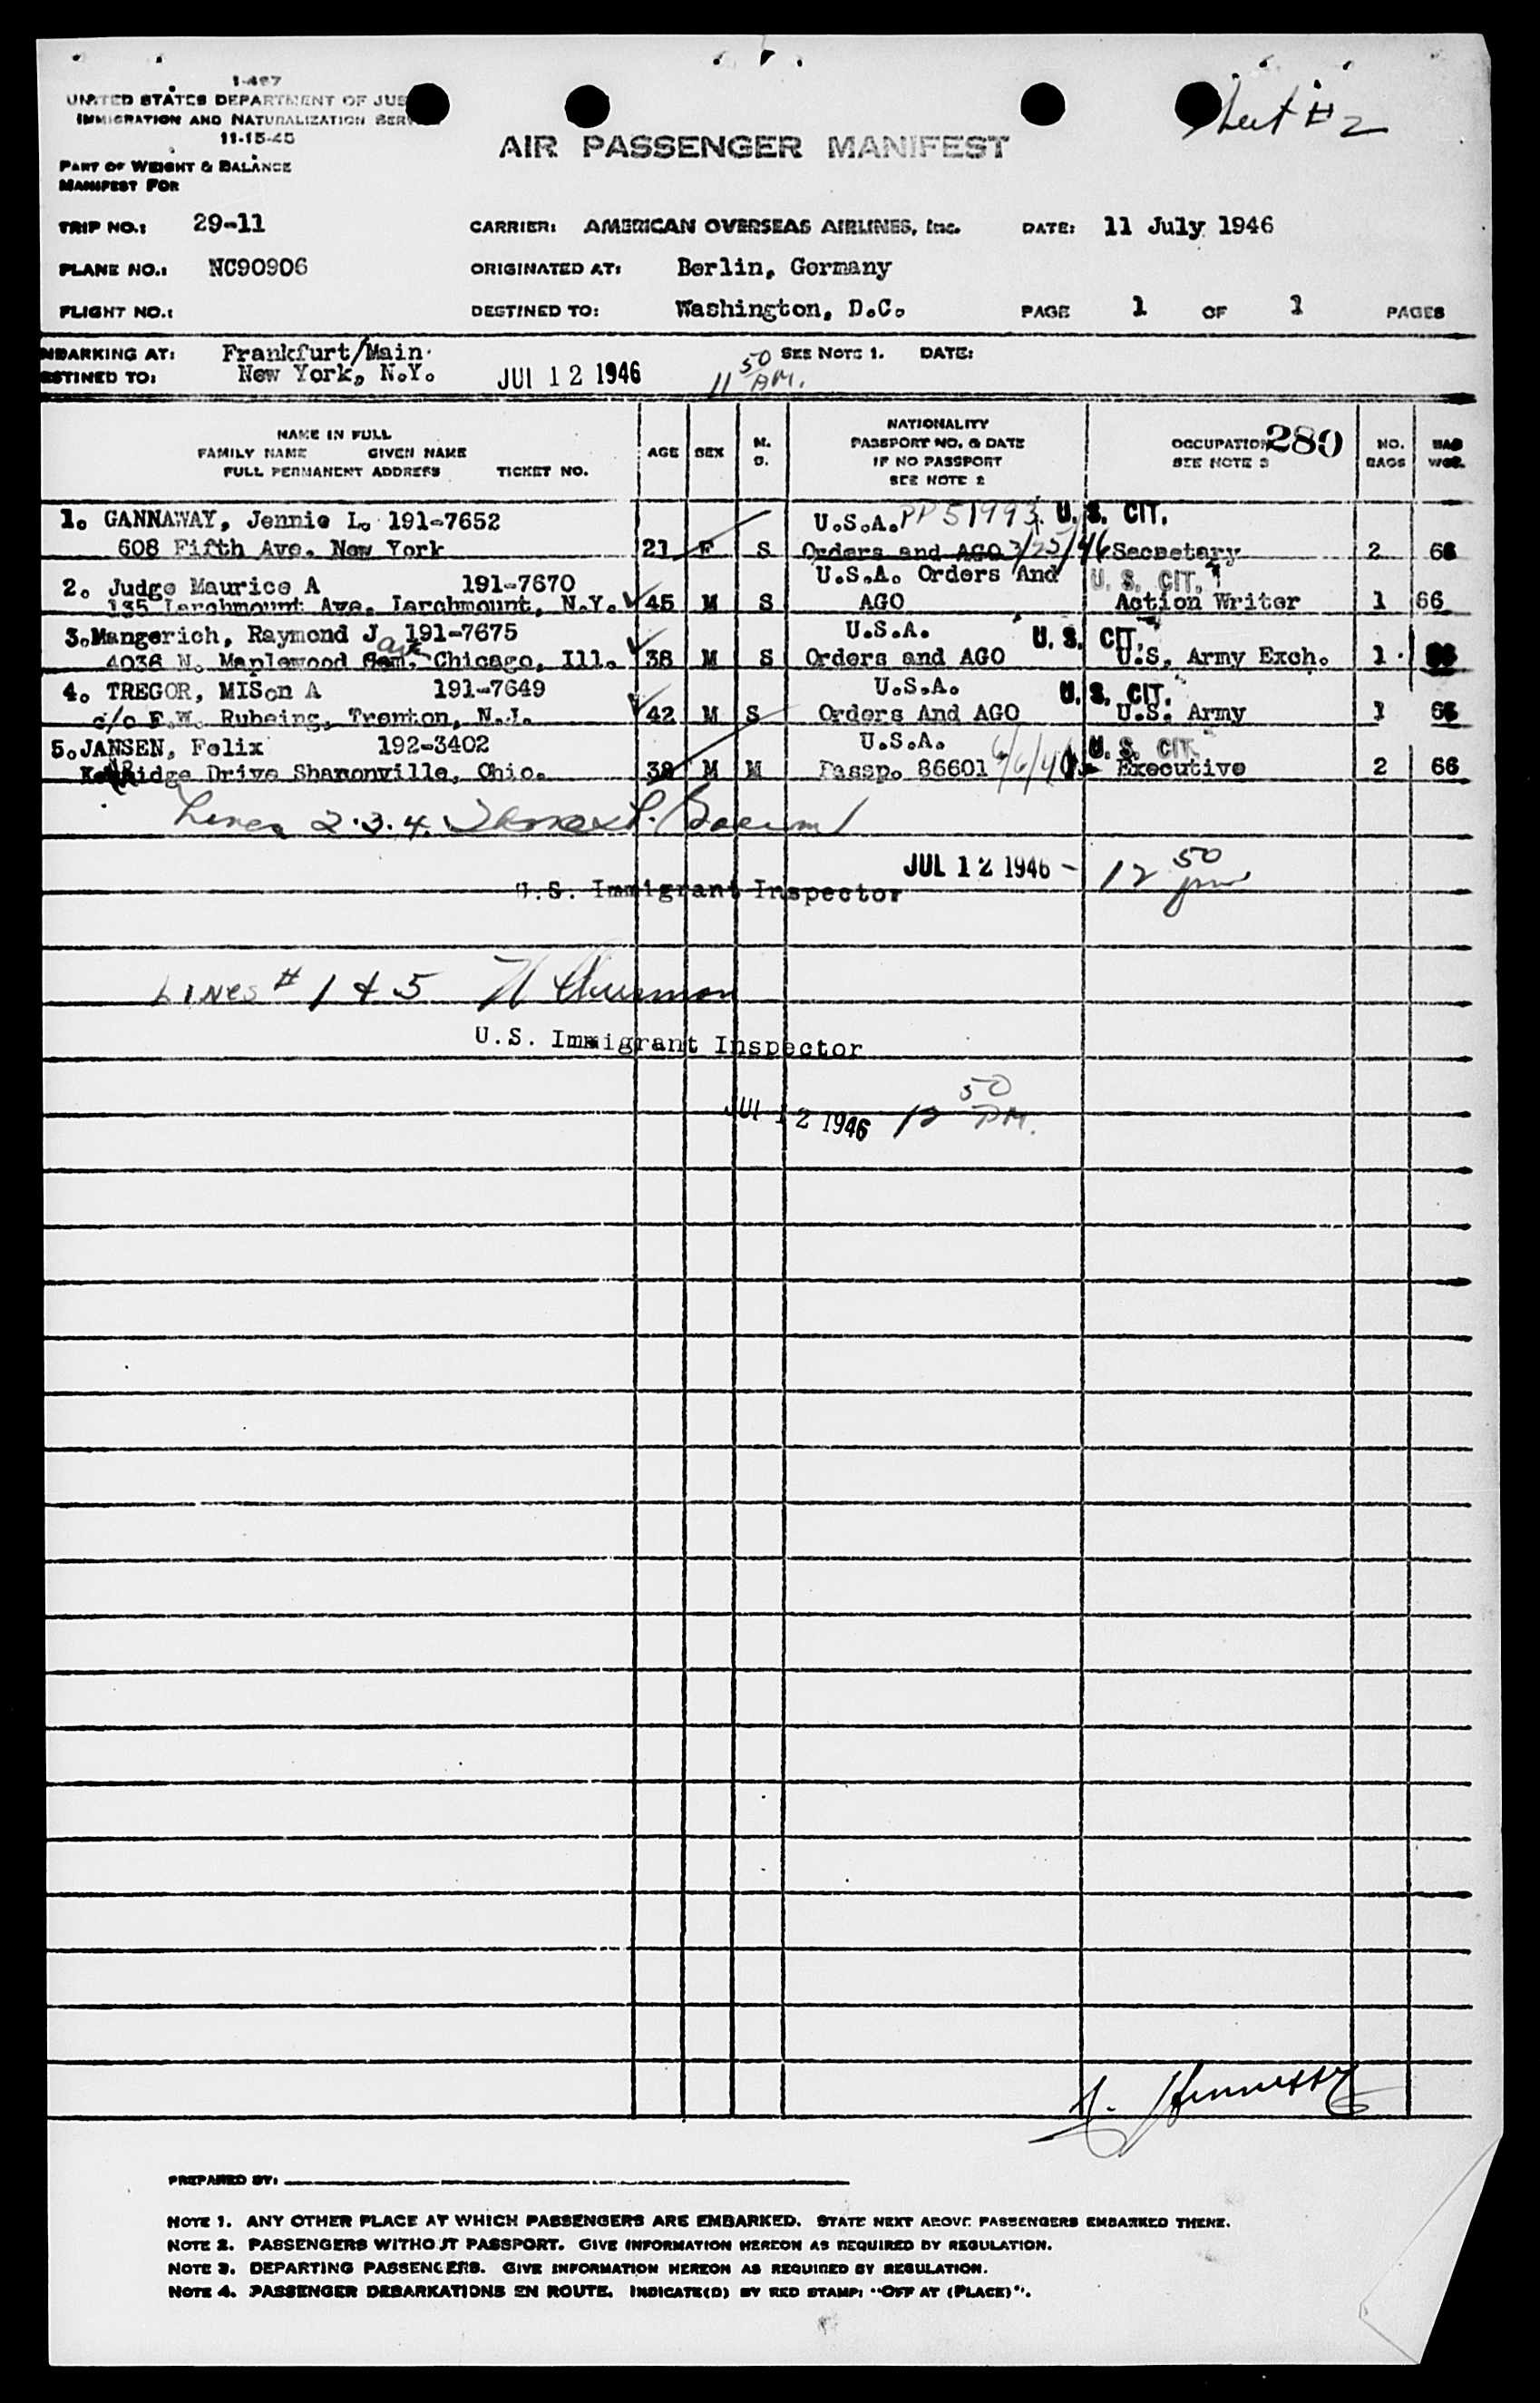 I-467
UNITED STATES DEPARTMENT OF JUS
IMMIGRATION AND NATURALIZATION SERV
11-15-45
PART OF WEIGHT & BALANCE
MANIFEST FOR
Sheet #2
AIR PASSENGER MANIFEST
TRIP NO.: 29-11 CARRIER: AMERICAN OVERSEAS AIRLINES, Inc. DATE: 11 July 1946
PLANE NO.: NC90906 ORIGINATED AT: Berlin, Germany
FLIGHT NO.: DESTINED TO: Washington, D.C. PAGE 1 OF 1 PAGES
MBARKING AT: Frankfurt/Main SEE NOTE 1. DATE:
ESTINED TO: New York, N.Y. JUL 12 1946 11 50 AM.
NAME IN FULL
FAMILY NAME GIVEN NAME
FULL PERMANENT ADDRESS TICKET NO.
AGE SEX M. S.
NATIONALITY
PASSPORT NO. & DATE
IF NO PASSPORT
SEE NOTE 2
OCCUPATION 280
SEE NOTE 3
NO. BAGS
BAG WGT.
1. GANNAWAY, Jennie L. 191-7652 U.S.A. PP 51993 U.S. CIT.
608 Fifth Ave. New York 21 F S Orders and AGO 3/25/46 Secretary 2 66
2. Judge Maurice A 191-7670 U.S.A. Orders And U. S. CIT.
135 Larchmount Ave. Larchmount, N.Y. 45 M S AGO Action Writer 1 66
3. Mangerich, Raymond J 191-7675 U.S.A. U. S. CIT.
4036 N. Maplewood Ave. Chicago, Ill. 38 M S Orders and AGO U.S. Army Exch. 1
4. TREGOR, MISon A 191-7649 U.S.A. U. S. CIT.
c/o F.W. Rubeing, Trenton, N.J. 42 M S Orders And AGO U.S. Army 1 66
5. JANSEN, Felix 192-3402 U.S.A. U. S. CIT.
Drive Sharonville, Ohio. 38 M M Passp. 86601 Executive 2 66
Lines 2.3.4.
JUL 12 1946 - 12 50 pm
U.S. Immigrant Inspector
LINES # 1 & 5
U.S. Immigrant Inspector
JUL 12 1946 12 50 PM.
Hennessy
PREPARED BY:
NOTE 1. ANY OTHER PLACE AT WHICH PASSENGERS ARE EMBARKED. STATE NEXT ABOVE PASSENGERS EMBARKED THERE.
NOTE 2. PASSENGERS WITHOUT PASSPORT. GIVE INFORMATION HEREON AS REQUIRED BY REGULATION.
NOTE 3. DEPARTING PASSENGERS. GIVE INFORMATION HEREON AS REQUIRED BY REGULATION.
NOTE 4. PASSENGER DEBARKATIONS EN ROUTE. INDICATE(D) BY RED STAMP: "OFF AT (PLACE)".